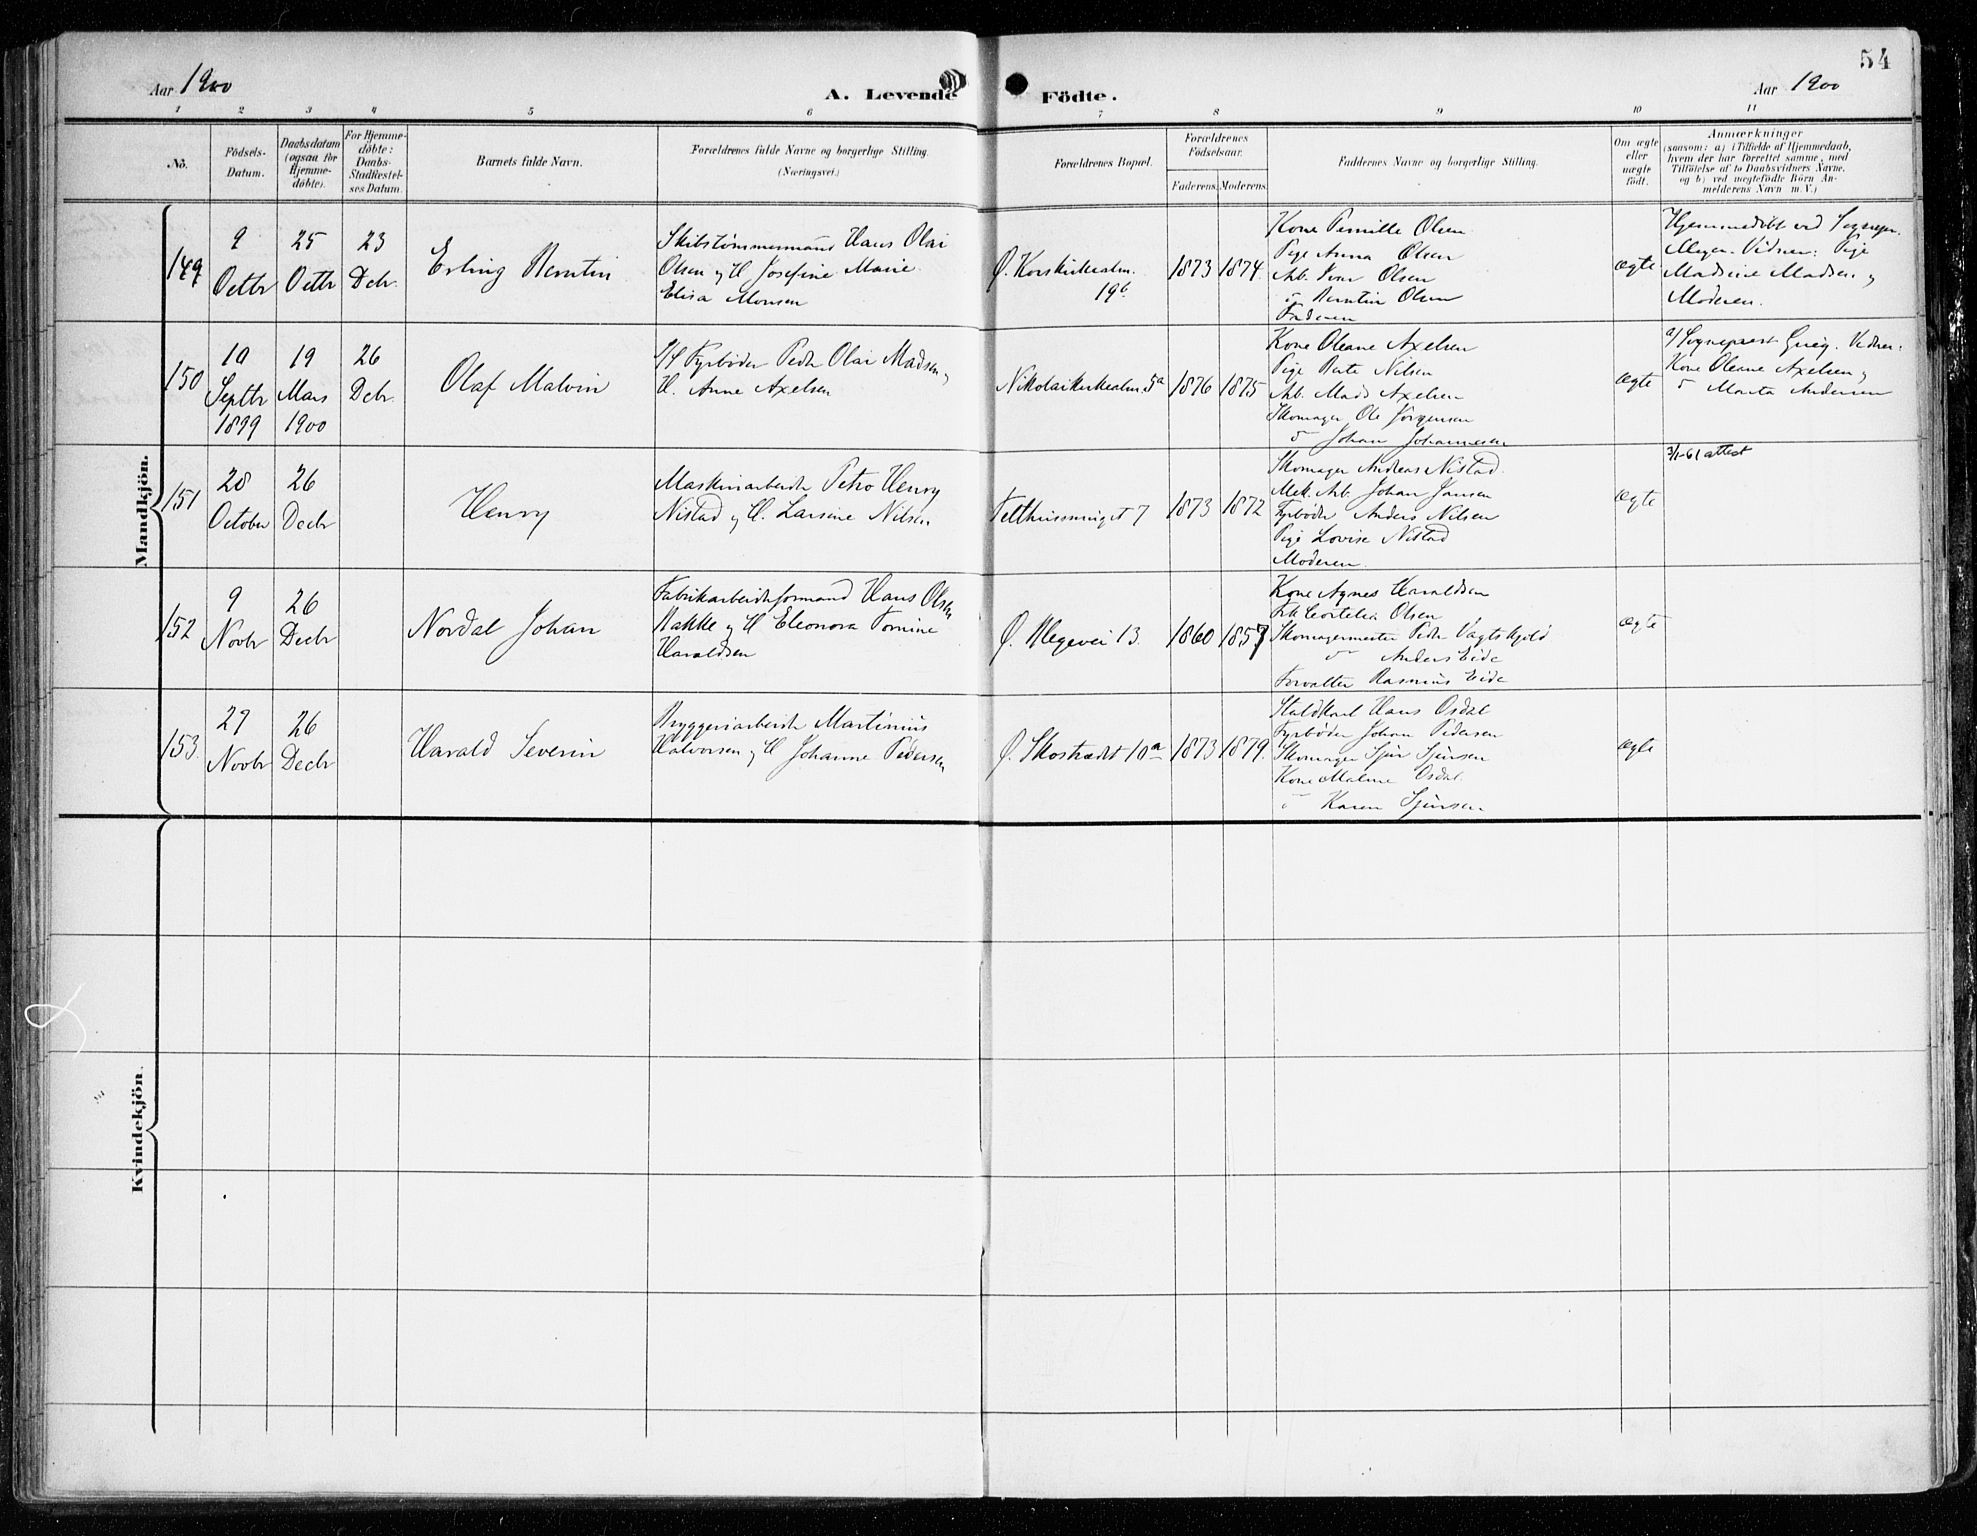 54
Aar 1900
A. Levende Födte.
Aar 1900
1 2 3 4 5 6 7 8 9 10 11
No.
Födsels-
Datum.
Daabsdatum
(ogsaa for
Hjemme-
döbte).
For Hjemme-
döbte:
Daabs-
Stadfæstel-
ses Datum.
Barnets fulde Navn.
Forældrenes fulde Navne og borgerlige Stilling.
(Næringsvei.)
Forældrenes Bopæl.
Forældrenes
Födselsaar.
Faderens.
Moderens.
Faddernes Navne og borgerlige Stilling.
Om ægte
eller
uægte
födt.
Anmærkninger
(saasom: a) i Tilfælde af Hjemmedaab,
hvem der har forrettet samme, med
Tilföielse af to Daabsvidners Navne.
og b) ved uægtefödte Börn An-
melderens Navn m. V.)
Mandkjön.
149
9
Octbr
25
Octbr
23
Dcbr.
Erling Berntin
Skibstømmermand Hans Olai
Olsen og H. Josefine Marie
Elisa Monsen
Ø. Korskirkealm.
19b.
1873
1874.
Kone Pernille Olsen
Pige Anna Olsen
Arb. Ivar Olsen
do Berntin Olsen
Faderen
ægte
Hjemmedøbt ved Sognepr.
Meyer. Vidner: Pige
Madsine Madsen og
Moderen.
150
10
Septbr
1899
19
Mars
1900
26
Dcbr.
Olaf Malvin
S/S Fyrbøder Peder Olai Madsen og
H. Anne Axelsen
Nikolaikirkealm. 5a
1876
1875
Kone Oleane Axelsen
Pige Berte Nilsen
Arb. Mads Axelsen
Skomager Ole Jørgensen
do Johan Johannesen
ægte
a/ Sognepræst Grieg. Vidner:
Kone Oleane Axelsen og
do Marta Andersen
151
28
October
26
Decbr
Henry
Maskinarbeider Petro Henry
Nistad og H. Larsine Nilsen
Felthussmuget 7
1873
1872
Skomager Andreas Nistad.
Mek. Arb. Johan Jansen
Fyrbøder Anders Nilsen
Pige Lovise Nistad
Moderen.
ægte
3/1-61 attest
152
9
Novbr
26
Decbr
Nordal Johan
Fabrikarbeiderformand Hans Olsen
Bakke og H. Eleonora Tomine
Haraldsen
Ø. Blegevei 13.
1860
1857
Kone Agnes Haraldsen
Frk Cortelia Olsen
Skomagermester Peder Vagtskjold
do Anders Eide
Forvalter Rasmus Eide
ægte
153.
27
Novbr
26
Decbr
Harald Severin
Bryggeriarbeider Martinius
Halvorsen og H. Johanne Pedersen
Ø. Skostrædet 10a
1873
1879.
Staldkarl Hans Osdal
Fyrbøder Johan Pedersen
Skomager Sjur Sjursen
Kone Malene Osdal
do Karen Sjursen
ægte
Kvindekjön.